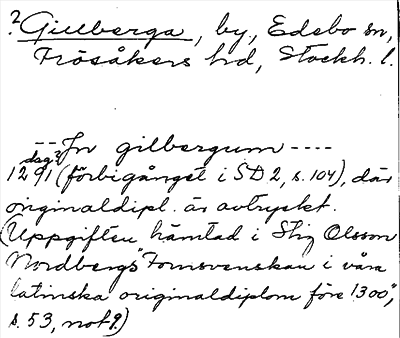 ? Gillberga, by, Edebo sn,
Frösåkers hd, Stockh. l.
-- In gilbergum ----
dag?
1291 (förbigånget i SD 2, s. 104), där
originaldipl. är avtryckt.
(Uppgiften hämtad i Stig Olsson
Nordbergs "Fornsvenskan i våra
latinska originaldiplom före 1300",
s. 53, not 9.)